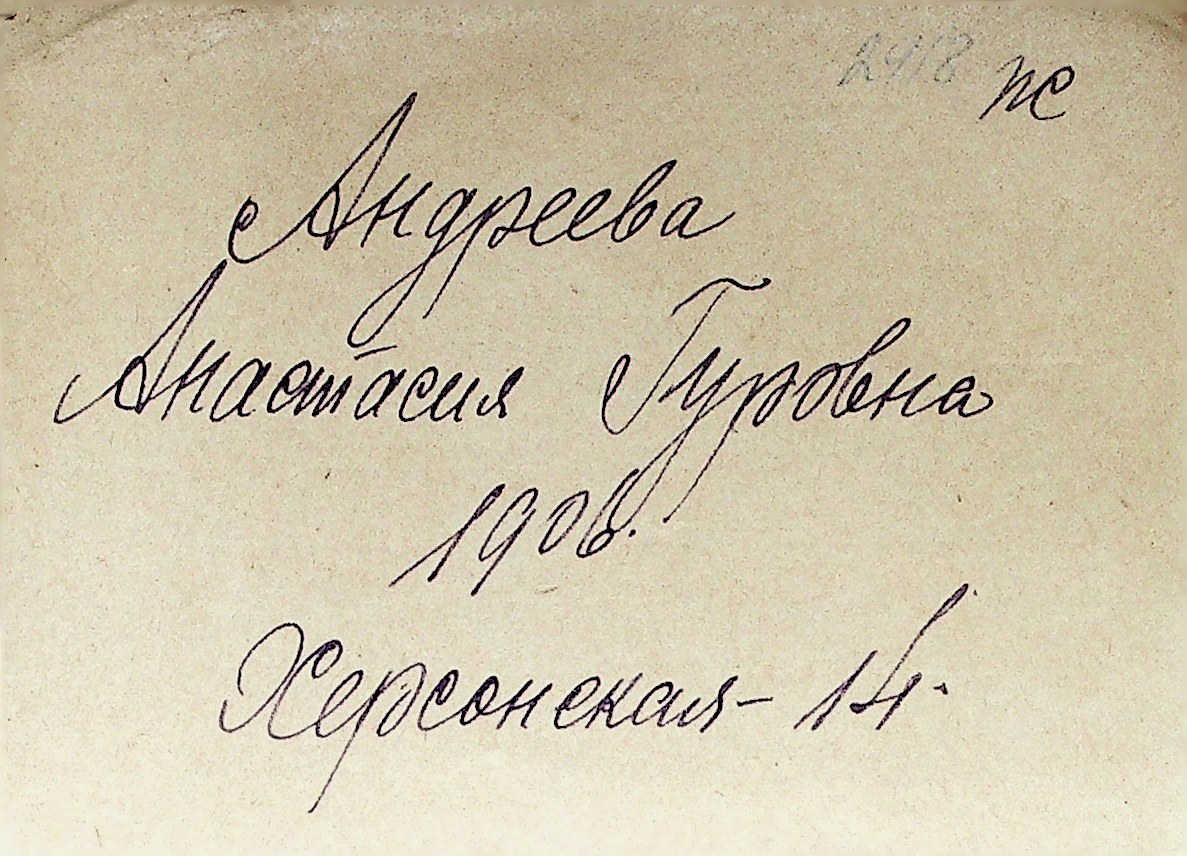 2418 пс
Андреева
Анастасия Гуровна
1906.
Херсонская - 14.